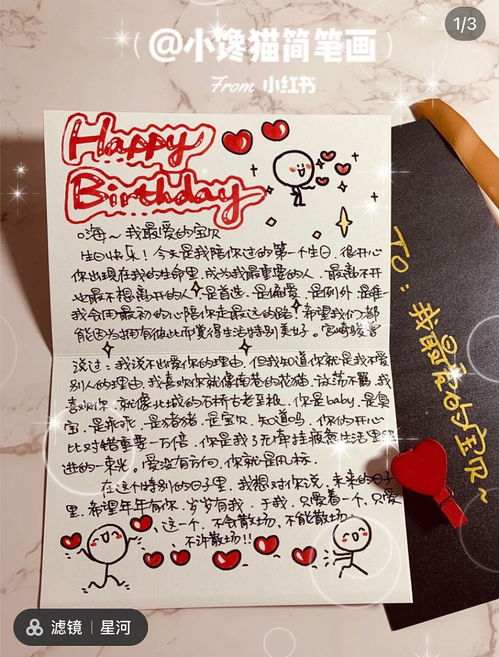 1/3
@小馋猫简笔画
From 小红书
Happy
Birthday
嗨～我最爱的宝贝
生日快乐！今天是我陪你过的第一个生日，很开心
你出现在我的生命里，成为我最重要的人，最离不开
也最不想离开的人，是首选，是偏爱，是例外，是唯一
我会用最初的心陪你走最远的路，希望我们都
能因为拥有彼此而觉得生活特别美好。宫崎骏
说过：我说不出爱你的理由，但我知道你就是我不爱
别人的理由，我喜欢你就像南巷的花猫，慵荡不羁，我
喜欢你，就像北城的石桥古老至极，你是baby，是臭
宝，是乖乖，是猪猪，是宝贝，知道吗，你的开心
比对错重要一万倍，你是我了无牵挂疲惫生活里照
进的一束光。爱没有方向，你就是风标。
在这个特别的日子里，我想对你说，未来的日子
里，希望年年有你，岁岁有我，于我，只爱着一个，只爱
这一个，不会散场，不能散场，
不许散场!!
TO：我最爱的宝贝
滤镜｜星河